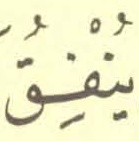 يُنْفِقُ